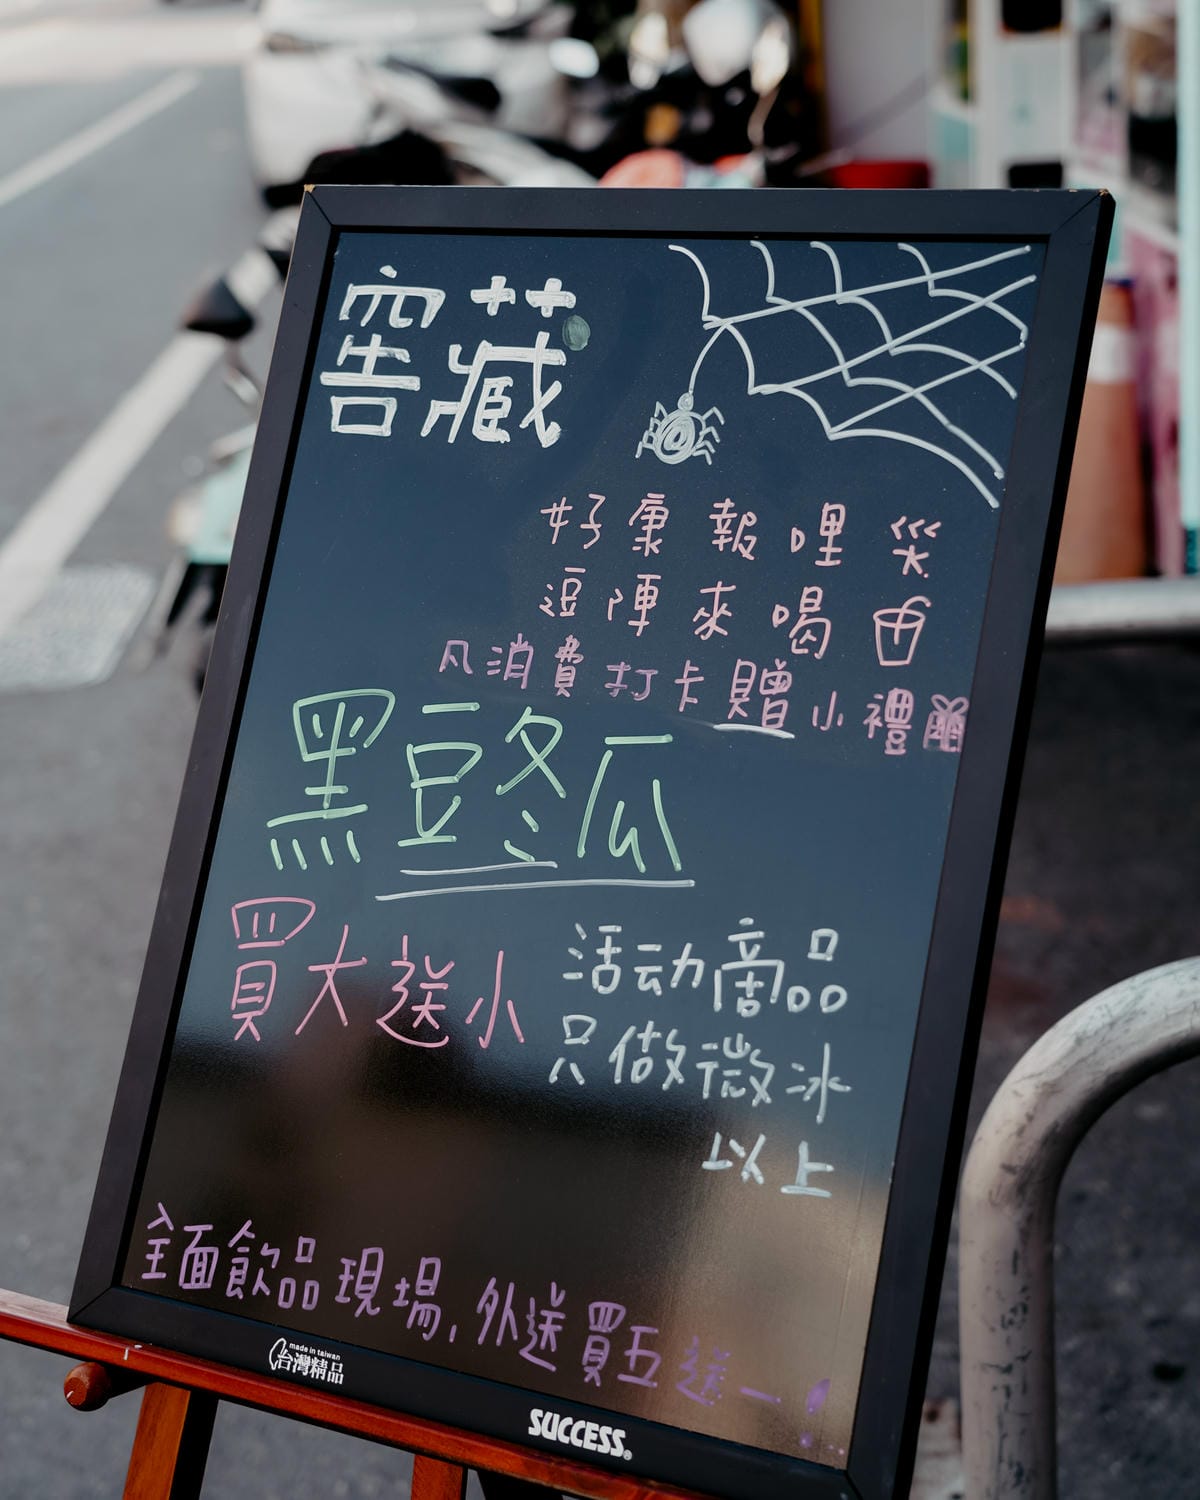 窖藏
好康報哩災
逗陣來喝
凡消費打卡贈小禮
黑豆冬瓜
買大送小
活动商品
只做微冰
以上
全面飲品現場,外送買五送一!
made in taiwan
台灣精品
SUCCESS